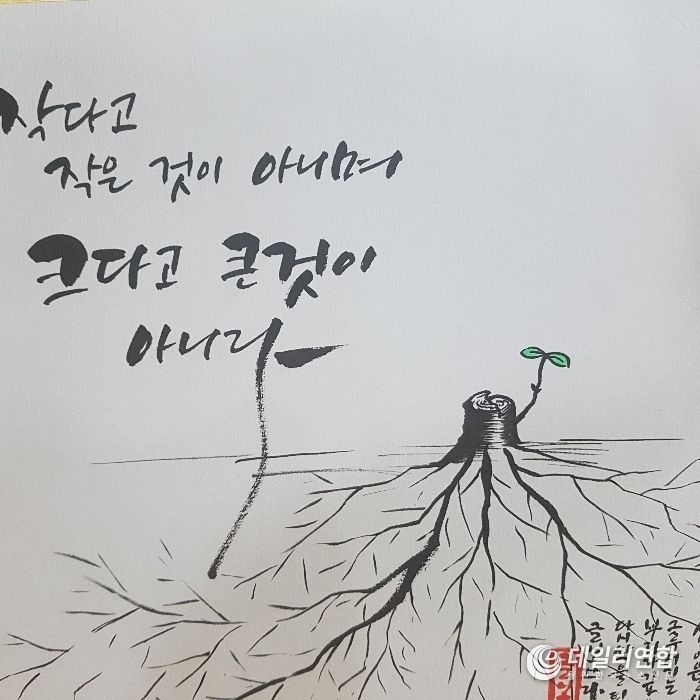 작다고
작은 것이 아니며
크다고 큰것이
아니라
데일리연합